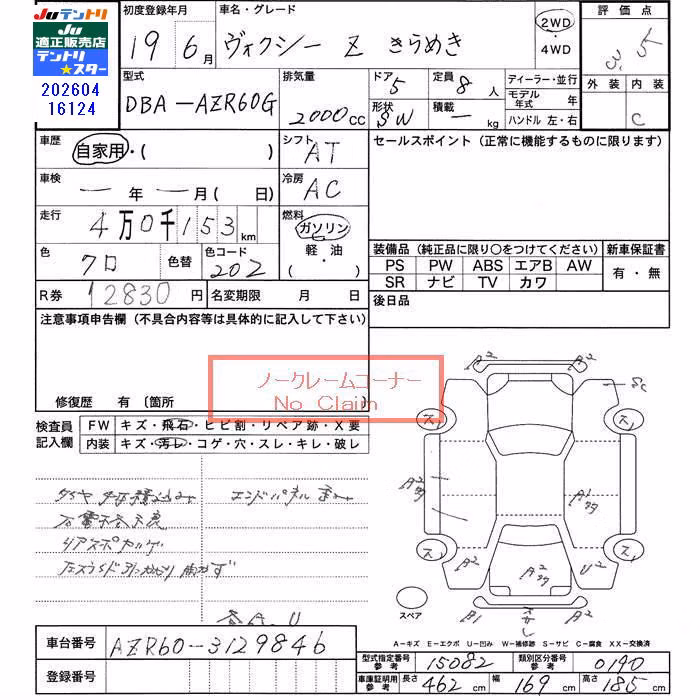 Juテントリ
Ju
適正販売店
テントリ
★スター
202604
16124
初度登録年月
19 6月
車名・グレード
ヴォクシー Z きらめき
2WD
4WD
評価点
3.5
外装 内装
C
型式
DBA-AZR60G
排気量
2000cc
ドア
5
形状
SW
定員
8人
積載
ー kg
ディーラー・並行
モデル年式 年
ハンドル 左・右
車歴
自家用・( )
シフト
AT
セールスポイント(正常に機能するものに限ります)
車検
ー年ー月( 日)
冷房
AC
走行
4万0千153km
燃料
ガソリン
軽・油
( ・ )
色
クロ
色替
色コード
202
装備品(純正品に限り○をつけてください)
PS PW ABS エアB AW
SR ナビ TV カワ
新車保証書
有・無
R券 12830円
名変期限 月 日
後日品
注意事項申告欄(不具合内容等は具体的に記入して下さい)
ノークレームコーナー
No Claim
修復歴 有〔箇所 〕
検査員
記入欄
FW キズ・飛石・ヒビ割・リペア跡・X要
内装 キズ・汚レ・コゲ・穴・スレ・キレ・破レ
A2 A2
SC
ス ス
A2 A2
ス ス
A2 A2 U2
B1 A2
スペア
A-キズ E-エクボ U-凹み W-補修跡 S-サビ C-腐食 XX-交換済
車台番号 AZR60-3129846
登録番号
型式指定番号 参考 15082
類別区分番号 参考 0140
車庫証明用 参考 長さ 462cm 幅 169cm 高さ 185cm